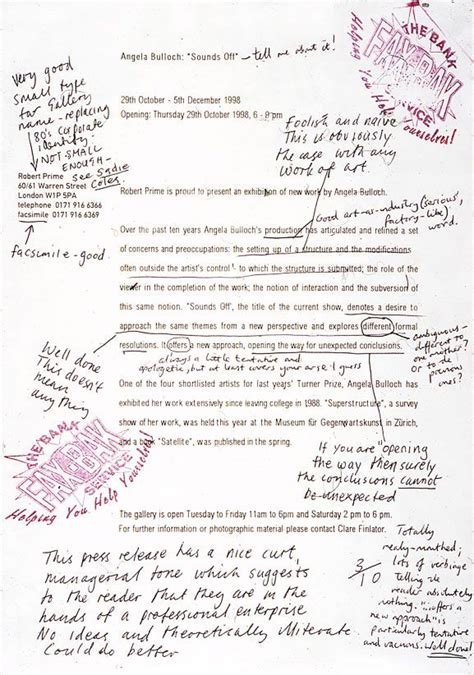 Angela Bulloch: "Sounds Off" - tell me about it!
THE BANK
FAX-BAK
SERVICE
Helping You Help Yourselves!
Very good
small type
for Gallery
name - replacing
80's corporate
identity.
NOT SMALL
ENOUGH -
see Sadie
Coles.
29th October - 5th December 1998
Opening: Thursday 29th October 1998, 6 - 8pm
Foolish and naive
This is obviously
the case with any
work of art.
Robert Prime
60/61 Warren Street
London W1P 5PA
telephone 0171 916 6366
facsimile 0171 916 6369
facsimile - good
Robert Prime is proud to present an exhibition of new work by Angela Bulloch.
Good art-as-industry (serious,
factory-like)
word.
Over the past ten years Angela Bulloch's production has articulated and refined a set
of concerns and preoccupations: the setting up of a structure and the modifications
often outside the artist's control - to which the structure is submitted; the role of the
viewer in the completion of the work; the notion of interaction and the subversion of
this same notion. "Sounds Off", the title of the current show, denotes a desire to
approach the same themes from a new perspective and explores different formal
resolutions. It offers a new approach, opening the way for unexpected conclusions.
always a little tentative and
apologetic, but at least covers your arse I guess
ambiguous -
different to
one another?
or to
previous
ones?
Well done
This doesn't
mean
anything
One of the four shortlisted artists for last years' Turner Prize, Angela Bulloch has
exhibited her work extensively since leaving college in 1988. "Superstructure", a survey
show of her work, was held this year at the Museum für Gegenwartskunst in Zürich,
and a book "Satellite", was published in the spring.
THE BANK
FAX-BAK
SERVICE
Helping You Help Yourselves!
If you are "opening
the way" then surely
the conclusions cannot
be unexpected
The gallery is open Tuesday to Friday 11am to 6pm and Saturday 2 pm to 6 pm.
For further information or photographic material please contact Clare Finlator.
This press release has a nice curt,
managerial tone which suggests
to the reader that they are in the
hands of a professional enterprise
No ideas and theoretically illiterate
Could do better
3/10
Totally
mealy-mouthed;
lots of verbiage
telling the
reader absolutely
nothing. "..offers a
new approach" is
particularly tentative
and vacuous. Well done!